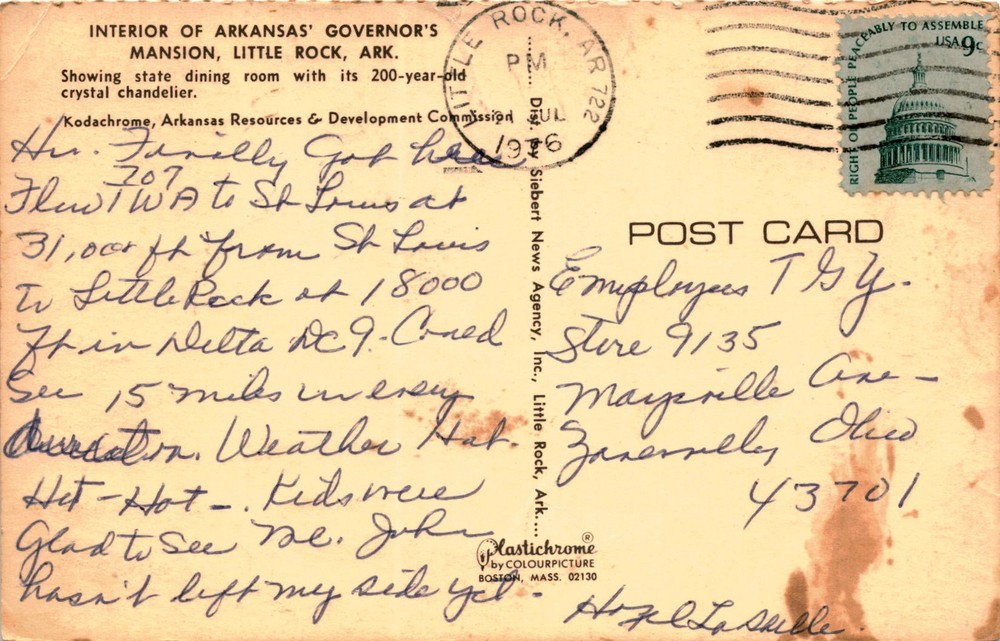 INTERIOR OF ARKANSAS' GOVERNOR'S
MANSION, LITTLE ROCK, ARK.
Showing state dining room with its 200-year-old
crystal chandelier.
Kodachrome, Arkansas Resources & Development Commission
Hi. Finally Got here
707
Flew TWA to St Louis at
31,000 ft from St Louis
to Little Rock at 18000
Ft in Delta DC9. Could
See 15 miles in every
direction. Weather Hot.
Hot - Hot -. Kids were
Glad to See Me. John
hasn't left my side yet -
Dist. by Siebert News Agency, Inc., Little Rock, Ark....
Plastichrome®
by COLOURPICTURE
BOSTON, MASS. 02130
LITTLE ROCK, AR 722
PM
JUL
RIGHT OF PEOPLE PEACEABLY TO ASSEMBLE
USA 9c
POST CARD
Employees T G Y.
Store 9135
Maysville Ave -
Zanesville, Ohio
43701
Hazel LaSalle